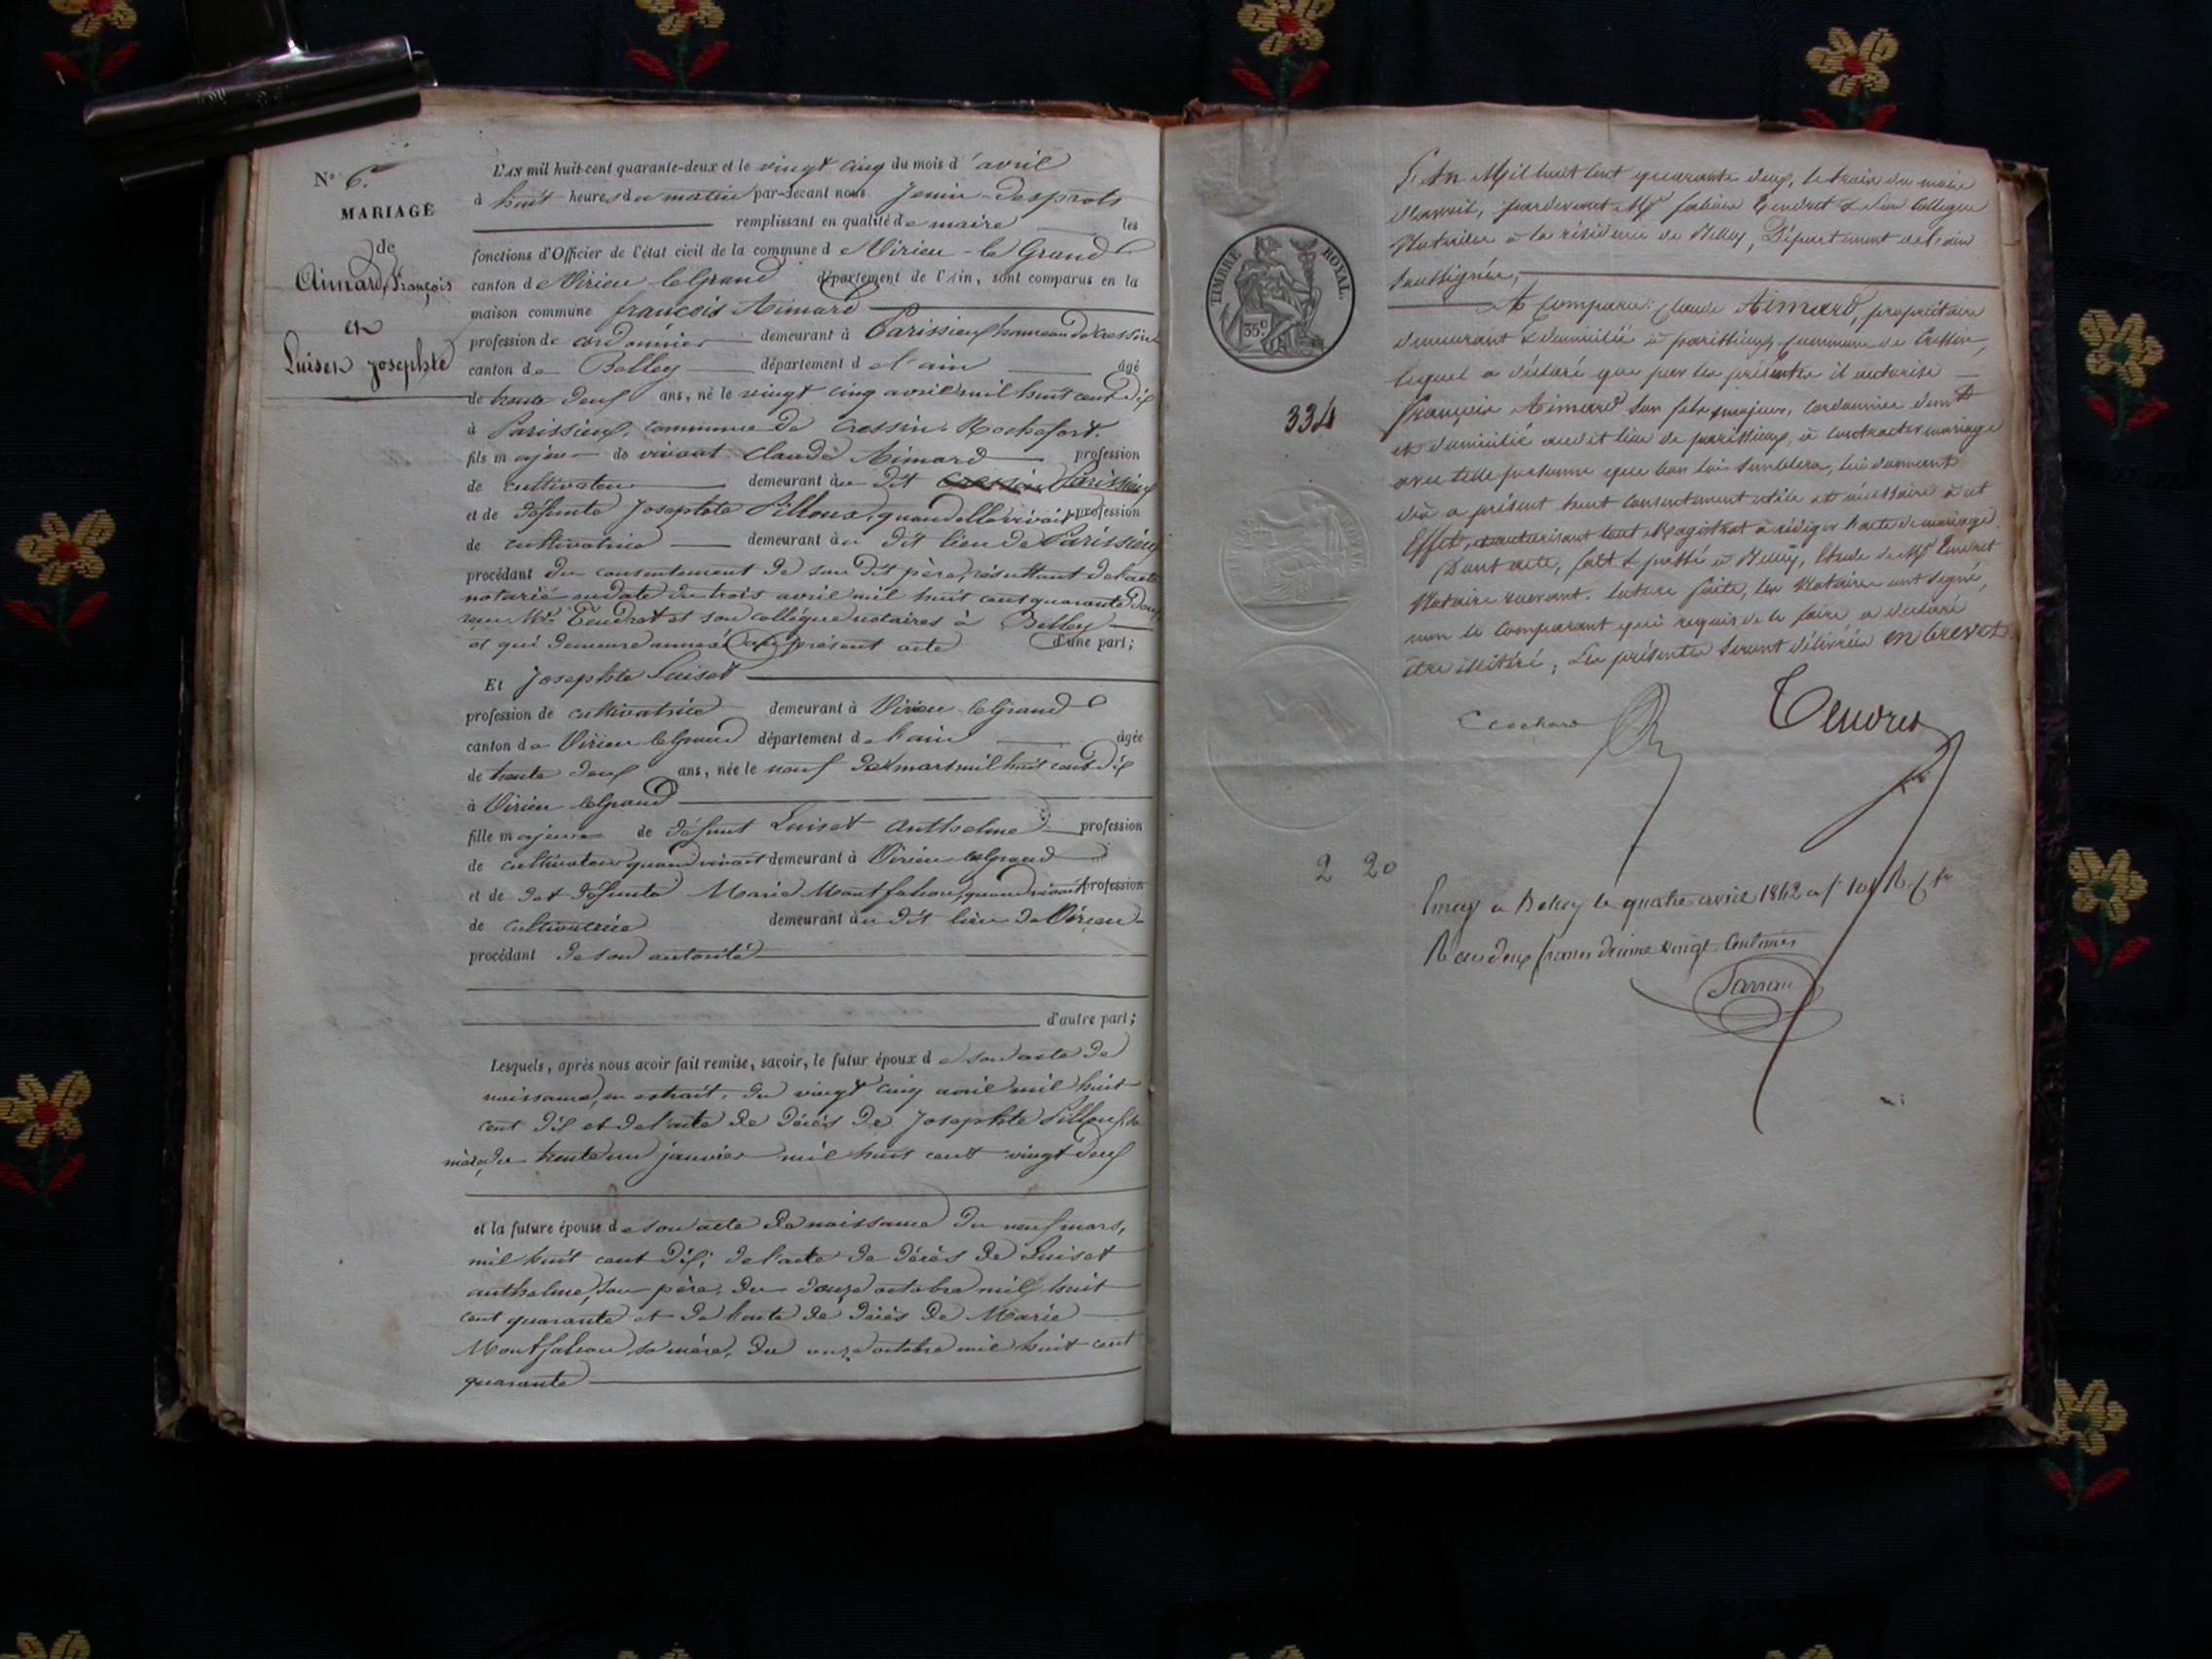 N.o 6.
MARIAGE
de
Aimard, François
et
Luiset Josephte
L'AN mil huit-cent quarante-deux et le vingt cinq du mois d'avril
à huit heures du matin par-devant nous Jenin-Desprots
remplissant en qualité de maire les
fonctions d'Officier de l'état civil de la commune de Virieu-le Grand
canton de Virieu le Grand département de l'Ain, sont comparus en la
maison commune françois Aimard
profession de cordonnier demeurant à Parissieux hameau de Cressin
canton de Belley département de l'ain âgé
de trente deux ans, né le vingt cinq avril mil huit cent dix
à Parissieux, commune de Cressin-Rochefort.
fils majeur de vivant Claude Aimard profession
de cultivateur demeurant au dit Cressin Parissieux
et de défunte Josephte Pilloux, quand elle vivait profession
de cultivatrice demeurant au dit lieu de Parissieux
procédant du consentement de son dit père, résultant de l'acte
notarié en date du trois avril mil huit cent quarante deux
reçu Me Tendret et son collégue notaires à Belley
et qui demeure annexé au présent acte d'une part;
Et Josephte Luiset
profession de cultivatrice demeurant à Virieu le Grand
canton de Virieu le Grand département de l'ain âgée
de trente deux ans, née le neuf de mars mil huit cent dix
à Virieu le Grand
fille majeure de défunt Luiset Anthelme profession
de cultivateur quand vivait demeurant à Virieu le Grand
et de défunte Marie Montfalcon, quand vivait profession
de cultivatrice demeurant au dit lieu de Virieu
procédant de son autorité
d'autre part;
Lesquels, après nous avoir fait remise, savoir, le futur époux de son acte de
naissance, en extrait, du vingt cinq avril mil huit
cent dix et de l'acte de décès de Josephte Pilloux, sa
mère, du trente un janvier mil huit cent vingt deux
et la future épouse de son acte de naissance du neuf mars,
mil huit cent dix; de l'acte de décès de Luiset
anthelme, son père, du douze octobre mil huit
cent quarante et de l'acte de décès de Marie
Montfalcon, sa mère, du onze octobre mil huit cent
quarante
TIMBRE ROYAL.
35c
334
2 20
L'An Mil huit cent quarante deux, le trois du mois
d'avril, pardevant Me Tendret & son Collegue
Notaires à la résidence de Belley, Département de l'ain
Soussignés,
A Comparu: Claude Aimard, propriétaire
demeurant & domicilié à parissieux, Commune de Cressin,
lequel a déclaré que par les présentes il autorise
François Aimard son fils majeur, Cordonnier demt
et domicilié audit lieu de parissieux, à Contracter mariage
avec telle personne que bon lui semblera, lui donnant
dès à présent tout consentement utile et nécessaire à cet
Effet, autorisant tout Magistrat à rédiger l'acte de mariage.
Dont acte, fait & passé à Belley, Etude de Me Tendret
Notaire recevant. lecture faite, les Notaires ont signé,
non le Comparant qui requis de le faire, a déclaré
être illitéré; Les présentes seront délivrées en brevet.
Tendret
Enreg. à Belley le quatre avril 1842
R. deux francs décime vingt Centimes